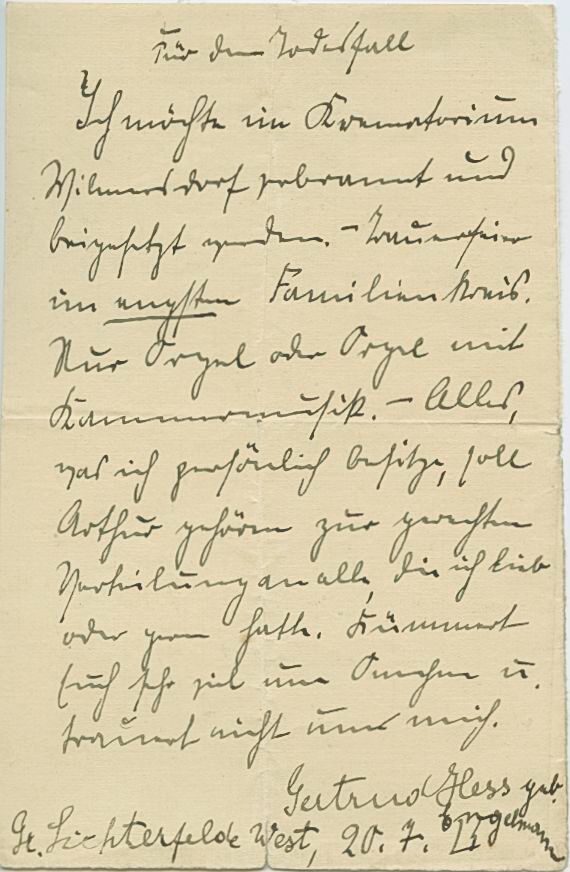 Für den Todesfall
Ich möchte im Krematorium
Wilmersdorf gebrannt und
beigesetzt werden. – Trauerfeier
im engsten Familienkreis.
Nur Orgel oder Orgel mit
Kammermusik. – Alles,
was ich persönlich besitze, soll
Arthur gehören zur gerechten
Verteilung an alle, die ich lieb
oder gern hatte. Kümmert
Euch sehr viel um Omchen u.
trauert nicht um mich.
Gertrud Hess geb.
Engelmann
Gr. Lichterfelde West, 20. 7.